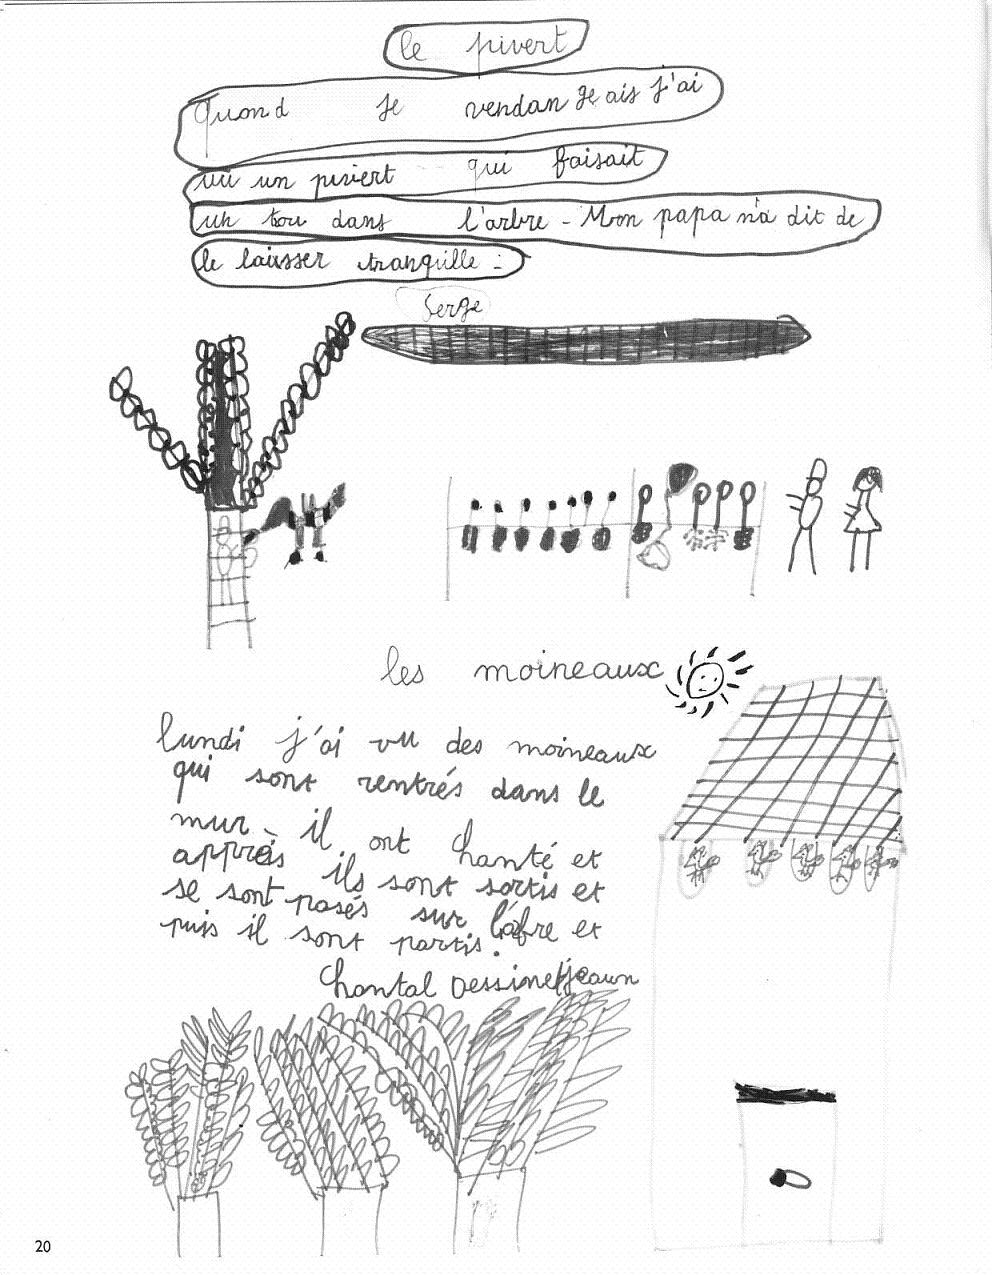 le pivert
Quand je vendan Je ais j'ai
vu un pivert qui faisait
un tou dans l'arbre - Mon papa n'a dit de
le laisser tranquille -
Serge
les moineaux
lundi j'ai vu des moineaux
qui sont rentrés dans le
mur. il ont chanté et
apprès ils sont sortis et
se sont posés sur l'abre et
puis il sont partis.
Chantal
20